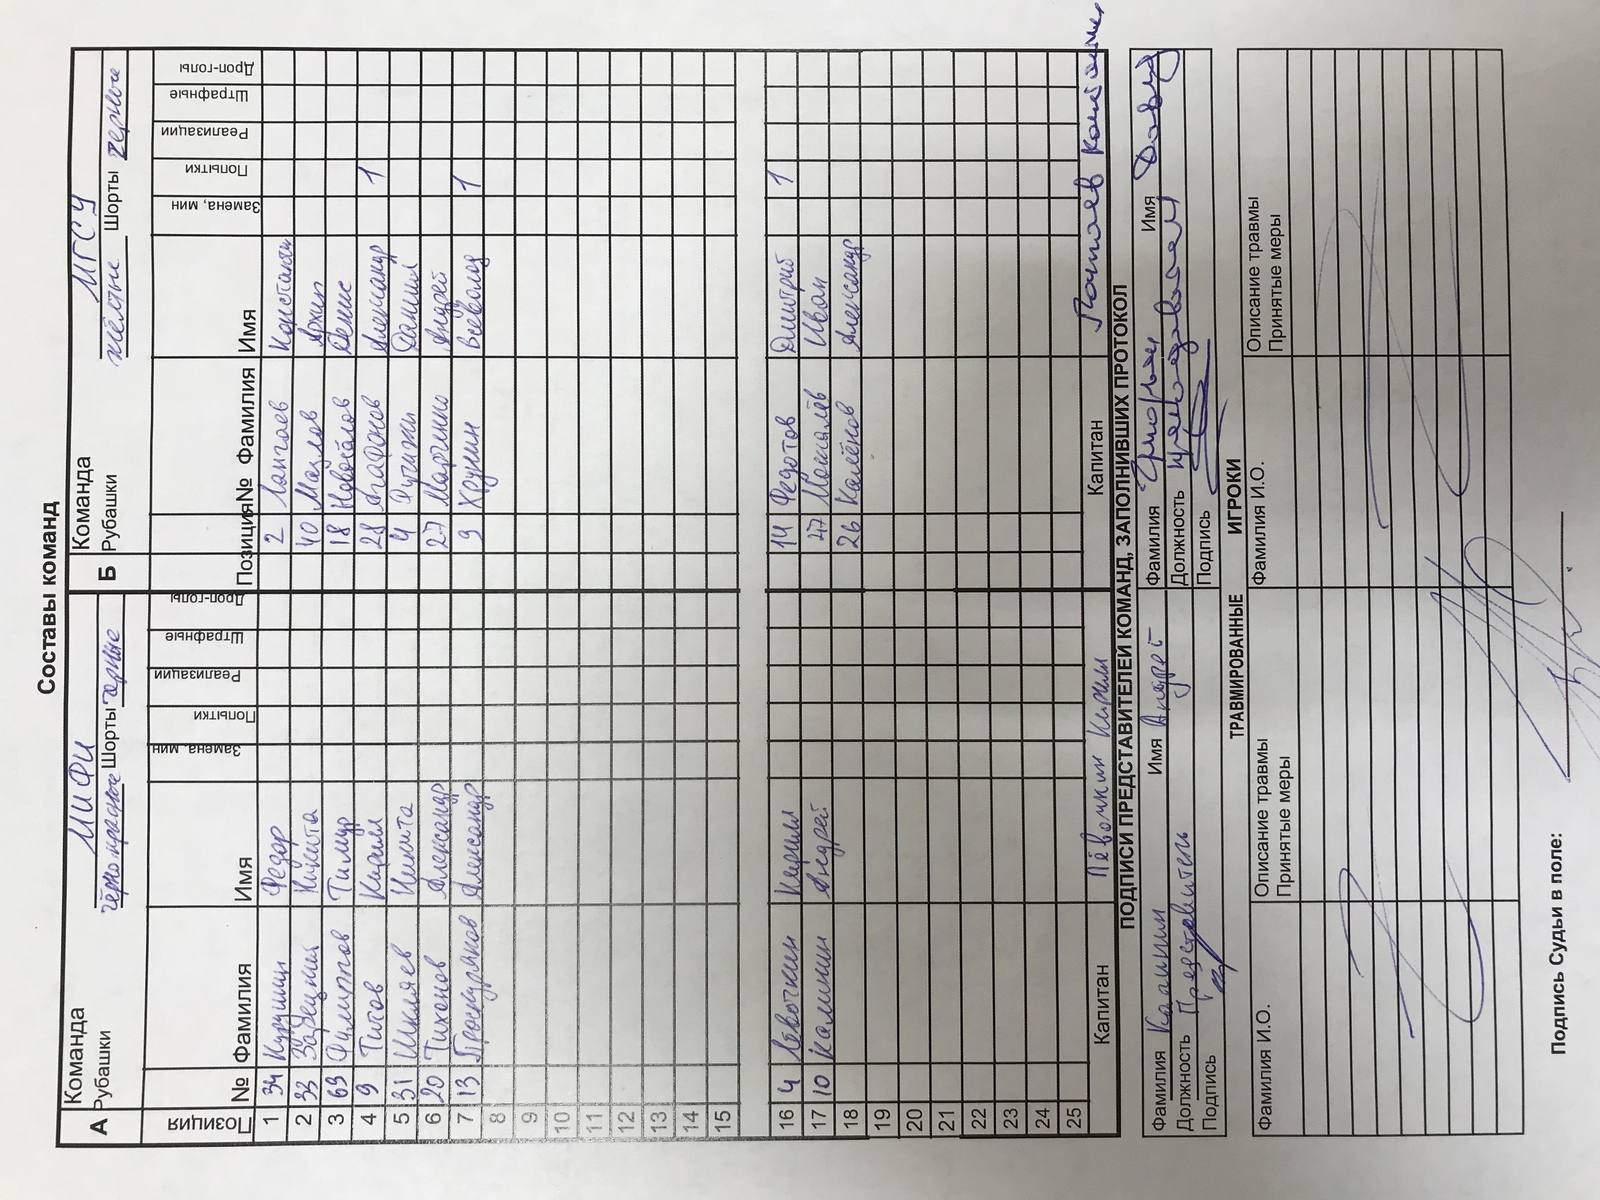 Составы команд
А Команда МИФИ
Рубашки Шорты черные
Позиция № Фамилия Имя Замена, мин Попытки Реализации Штрафные Дроп-голы
1 34 Федор
2 33 Зарецкий Никита
3 69 Тимур
4 9 Титов Кирилл
5 31 Шкляев Никита
6 20 Тихонов Александр
7 13 Проскуряков Александр
8
9
10
11
12
13
14
15
16 4 Кирилл
17 10 Калинин Андрей
18
19
20
21
22
23
24
25
Капитан Кирилл
Б Команда МГСУ
Рубашки желтые Шорты черные
Позиция № Фамилия Имя Замена, мин Попытки Реализации Штрафные Дроп-голы
2 Константин
40 Маслов Архип
18 Денис
28 Агафонов Александр 1
4 Даниил
27 Марченко Андрей
9 Хрунин Всеволод 1
14 Федотов Дмитрий 1
47 Иван
26 Александр
Капитан
ПОДПИСИ ПРЕДСТАВИТЕЛЕЙ КОМАНД, ЗАПОЛНИВШИХ ПРОТОКОЛ
Фамилия Калинин Имя Андрей
Должность Представитель
Подпись
Фамилия Имя Давид
Должность
Подпись
ТРАВМИРОВАННЫЕ ИГРОКИ
Фамилия И.О. Описание травмы
Принятые меры
Фамилия И.О. Описание травмы
Принятые меры
Подпись Судьи в поле: